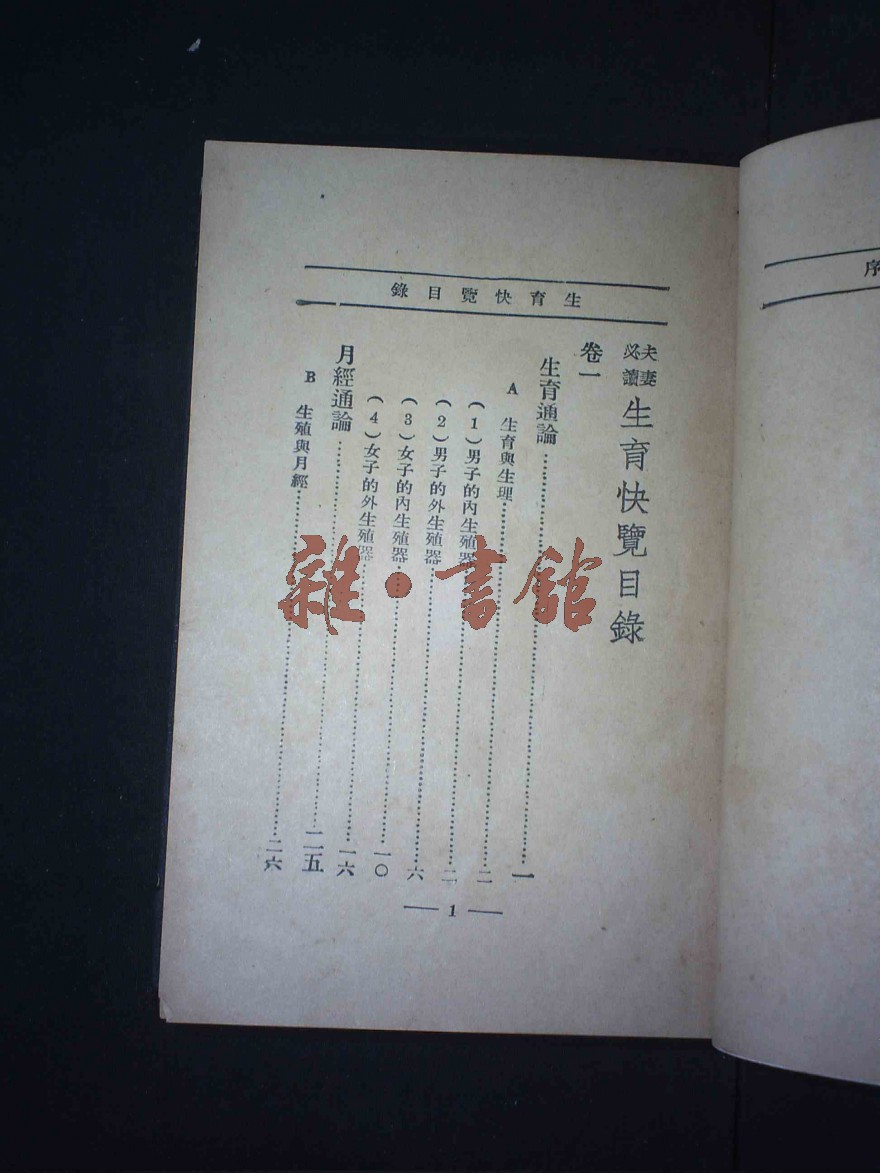 生育快覽目錄
夫妻必讀 生育快覽目錄
卷一
生育通論⋯⋯一
A 生育與生理⋯⋯二
(1)男子的內生殖器⋯⋯二
(2)男子的外生殖器⋯⋯六
(3)女子的內生殖器⋯⋯一〇
(4)女子的外生殖器⋯⋯一六
月經通論⋯⋯二五
B 生殖與月經⋯⋯二六
— 1 —
序
雜·書館